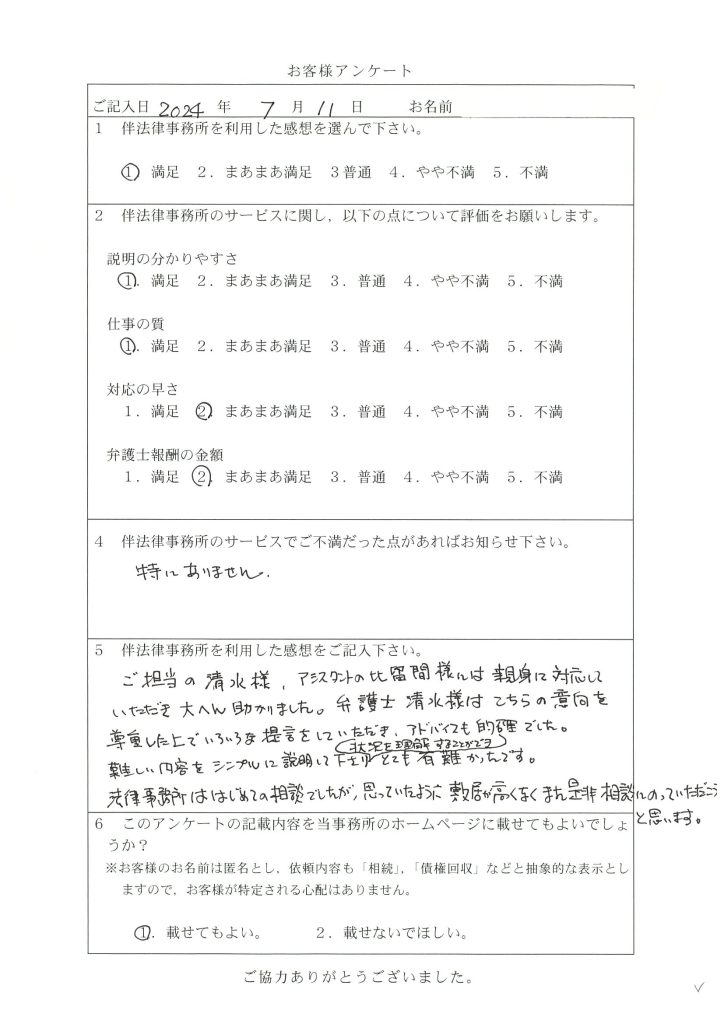 お客様アンケート
ご記入日 2024 年 7 月 11 日 お名前
1 伴法律事務所を利用した感想を選んで下さい。
①満足 2．まあまあ満足 3普通 4．やや不満 5．不満
2 伴法律事務所のサービスに関し，以下の点について評価をお願いします。
説明の分かりやすさ
①．満足 2．まあまあ満足 3．普通 4．やや不満 5．不満
仕事の質
①．満足 2．まあまあ満足 3．普通 4．やや不満 5．不満
対応の早さ
1．満足 ②．まあまあ満足 3．普通 4．やや不満 5．不満
弁護士報酬の金額
1．満足 ②．まあまあ満足 3．普通 4．やや不満 5．不満
4 伴法律事務所のサービスでご不満だった点があればお知らせ下さい。
特にありません。
5 伴法律事務所を利用した感想をご記入下さい。
ご担当の清水様，アシスタントの比留間様には親身に対応して
いただき大へん助かりました。弁護士 清水様はこちらの意向を
尊重した上でいろいろな提言をしていただき、アドバイスも的確でした。
状況を理解することができ
難しい内容をシンプルに説明して下さり とても有難かったです。
法律事務所ははじめての相談でしたが、思っていたように敷居が高くなくまた是非相談にのっていただこう
と思います。
6 このアンケートの記載内容を当事務所のホームページに載せてもよいでしょ
うか？
※お客様のお名前は匿名とし，依頼内容も「相続」，「債権回収」などと抽象的な表示とし
ますので，お客様が特定される心配はありません。
①．載せてもよい。 2．載せないでほしい。
ご協力ありがとうございました。